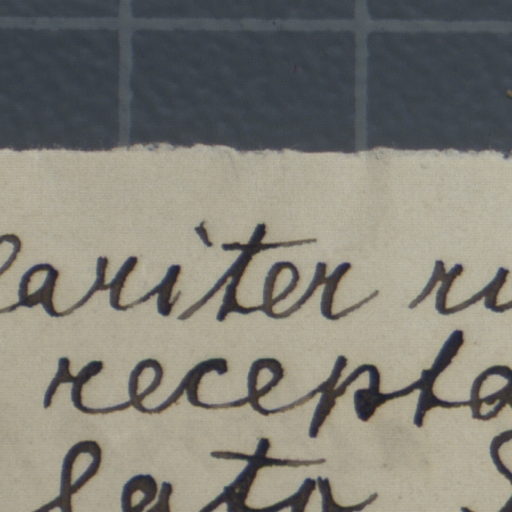 lariter ru
recepta
lata